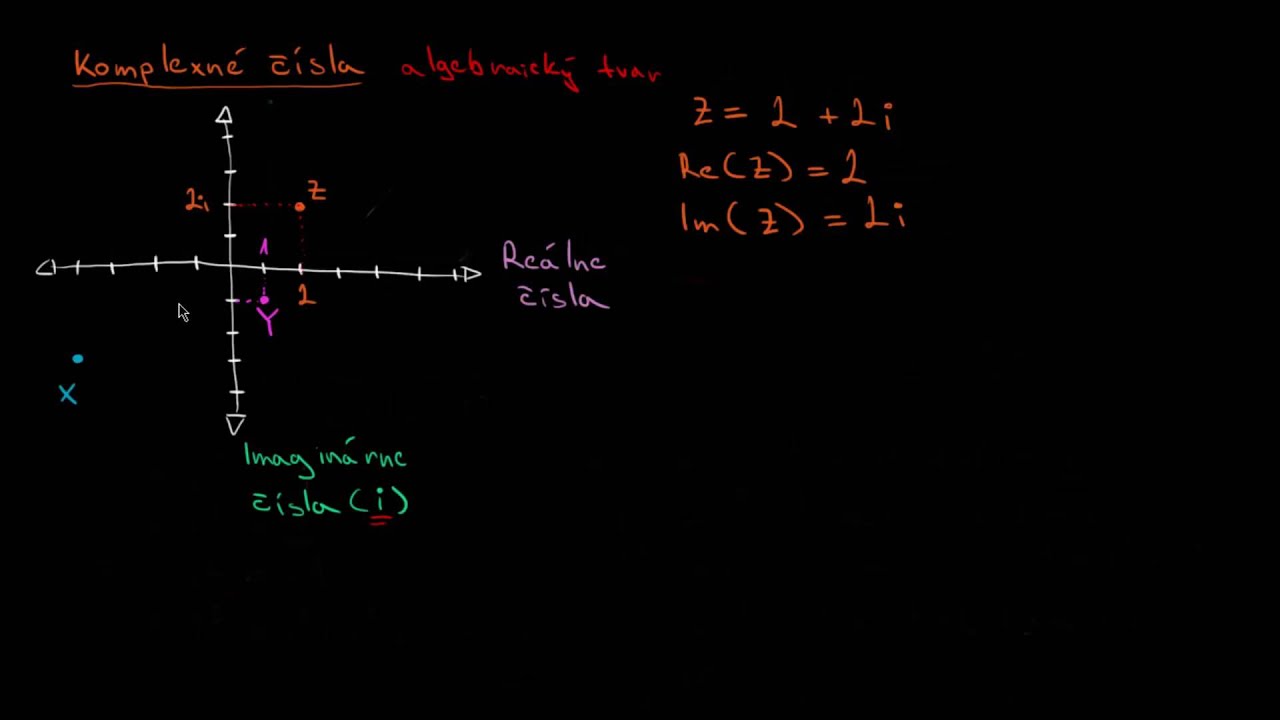 Komplexné čísla algebraický tvar
z = 2 + 2i
Re(z) = 2
Im(z) = 2i
2i
z
1
Reálne
čísla
2
Y
X
Imaginárne
čísla (i)